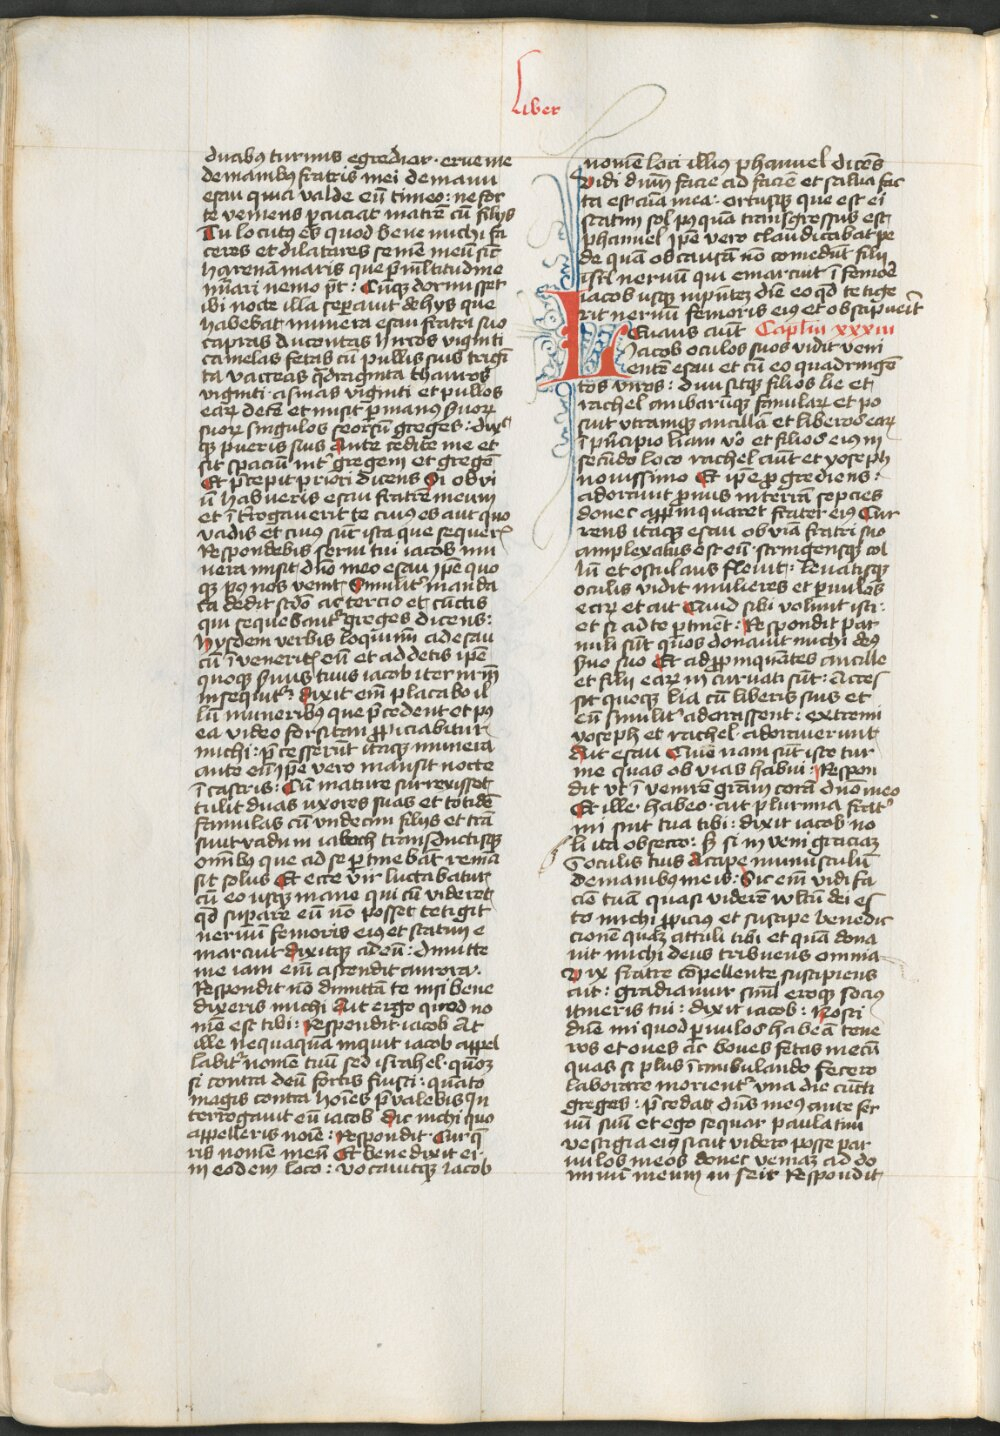 Liber
duabꝰ turmis egrediar · erue me
de manibꝰ fratris mei de manu
esau quia valde eū timeo : ne for
te veniens ꝑcuciat matrē cū filijs
Tu locutꝰ es quod bene michi fa
ceres et dilatares semē meū sic̄
harenā maris que p̄ m̄ltitudine
nūari nemo pt̄ : Cūqꝫ dormisset
ibi nocte illa seꝑauit de hys que
habebat munera esau fratri suo
capras ducentas hircos viginti
camelas fetas cū pullis suis trigī
ta vaccas q̄draginta thauros
viginti · asinas viginti et pullos
eaꝝ decē et misit ꝑ manꝰ suoꝝ
suoꝝ singulos seorsū greges : dix
qꝫ pueris suis Ante cedite me et
sit spaciū int̄ gregem et gregē
Et p̄cepit priori dicens Si obui
ū habueris esau fratrē meum
et ī t̄rogauerit te cuiꝰ es aut quo
vadis et cuiꝰ sūt ista que sequer̄
Respondebis serui tui iacob mu
nera misit dn̄o meo esau ip̄e quo
qꝫ pꝰ nos venit Similit̄ manda
ta dedit scd̄o ac tercio et cūctis
qui sequebāt̄ greges dicens :
Hysdem verbis loquimī ad esau
cū īueneritꝭ eū et addetis ip̄e
quoqꝫ suus tuus iacob iter nr̄m
insequit̄ : dixit em̄ placabo il
lū muneribꝰ que p̄cedent et pꝰ
ea video forsitan ꝓpiciabitur
michi : p̄cesserūt itaqꝫ munera
ante eū ip̄e vero mansit nocte
ī castris : Cū mature surrexisset
tulit duas vxores suas et totidē
famulas cū vndecim filijs et trā
siuit vadum iaboch transductisqꝫ
omībꝰ que ad se ꝑtinebāt remā
sit solus Et ecce vir luctabatur
cū eo usqꝫ mane qui cū videret
qd̄ suꝑare eū nō posset tetigit
neruū femoris eiꝰ et statim e
marcuit dixitqꝫ ad eū : Dimitte
me iam em̄ ascendit aurora ·
Respondit nō dimittā te nisi bene
dixeris michi Ait ergo quod no
mē est tibi : Respondit iacob At
ille nequaquā inquit iacob appel
labit̄ nomē tuū sed israhel · qm̄
si contra deū fortis fuisti : quāto
magis contra hoīes p̄valebis In
terrogauit eū iacob dic michi quo
appelleris noīe : Respondit Cur q̄
ris nomē meū Et benedixit ei ·
in eodem loco : vocauitqꝫ iacob
nomē loci illiꝰ phanuel dicēs
Vidi dn̄m facie ad faciē et salua fac
ta est aīa mea · ortusqꝫ que est ei
statim sol pꝰquā transgressus est
phanuel ip̄e vero claudicabat pe
de quā ob causā nō comedūt filij
isrl̄ neruū qui emarcuit ī femore
iacob usqꝫ in p̄ntē diē eo qd̄ tetige
rit neruū femoris eiꝰ et obstipuerīt
Leuans aūt Caplm̄ xxxiii
Iacob oculos suos vidit veni
entē esau et cū eo quadringē
tos viros : diuisitqꝫ filios lie et
rachel ambarūqꝫ famulaꝝ et po
suit vtramqꝫ ancillā et liberos eaꝝ
ī p̄ncipio liam v̊o et filios eiꝰ in
secūdo loco rachel aūt et yoseph
nouissimo Et ip̄e ꝓgrediens :
adorauit p̄nus in terrā sepcies
donec appinquaret frater eiꝰ Cur
rens itaqꝫ esau obuiā fratri suo
amplexatus est eū · stringensqꝫ col
lū et osculans fleuit : leuatisqꝫ
oculis vidit mulieres et ꝑuulos
eaꝝ et ait Quid sibi volunt isti ·
et si ad te ꝑtinent : Respondit par
uuli sūt quos donauit michi deꝰ
suo suo Et ad ꝓpinquātes ancille
et filij eaꝝ incuruati sūt : Acces
sit quoqꝫ lia cū liberis suis et
cū similit̄ adorassent : extremi
yoseph et rachel adorauerunt
Ait esau Que nam sūt iste tur
me quas obuias habui : Respon
dit vt īuenirē gr̄am corā dn̄o meo
Et ille · habeo · ait plurima frat̄
mi sint tua tibi : dixit iacob no
li ita obsecro : sꝫ si inueni graciaꝫ
Ī oculis tuis accipe munusculū
de manibꝰ meis : Sic em̄ vidi fa
ciē tuā quasi viderē vultū dei es
to michi ꝓpicius et suscipe benedic
cionē quaꝫ attuli tibi et quā dona
uit michi deus tribuens omnia
Vix fratre cōpellente suscipiens
ait : gradiamur simł eroqꝫ sociꝰ
itineris tui : dixit iacob : Nosti
dn̄e mi quod ꝑuulos habeā tene
ros et oues ac boues fetas mecū
quas si plus ī ambulando fecero
laborare morient̄ vna die cūcti
greges : p̄cedat dn̄s meꝰ ante ser
uū suū et ego sequar paulatim
vestigia eiꝰ sicut videro posse par
uulos meos donec veniaꝫ ad do
minū meum in seir Respondit